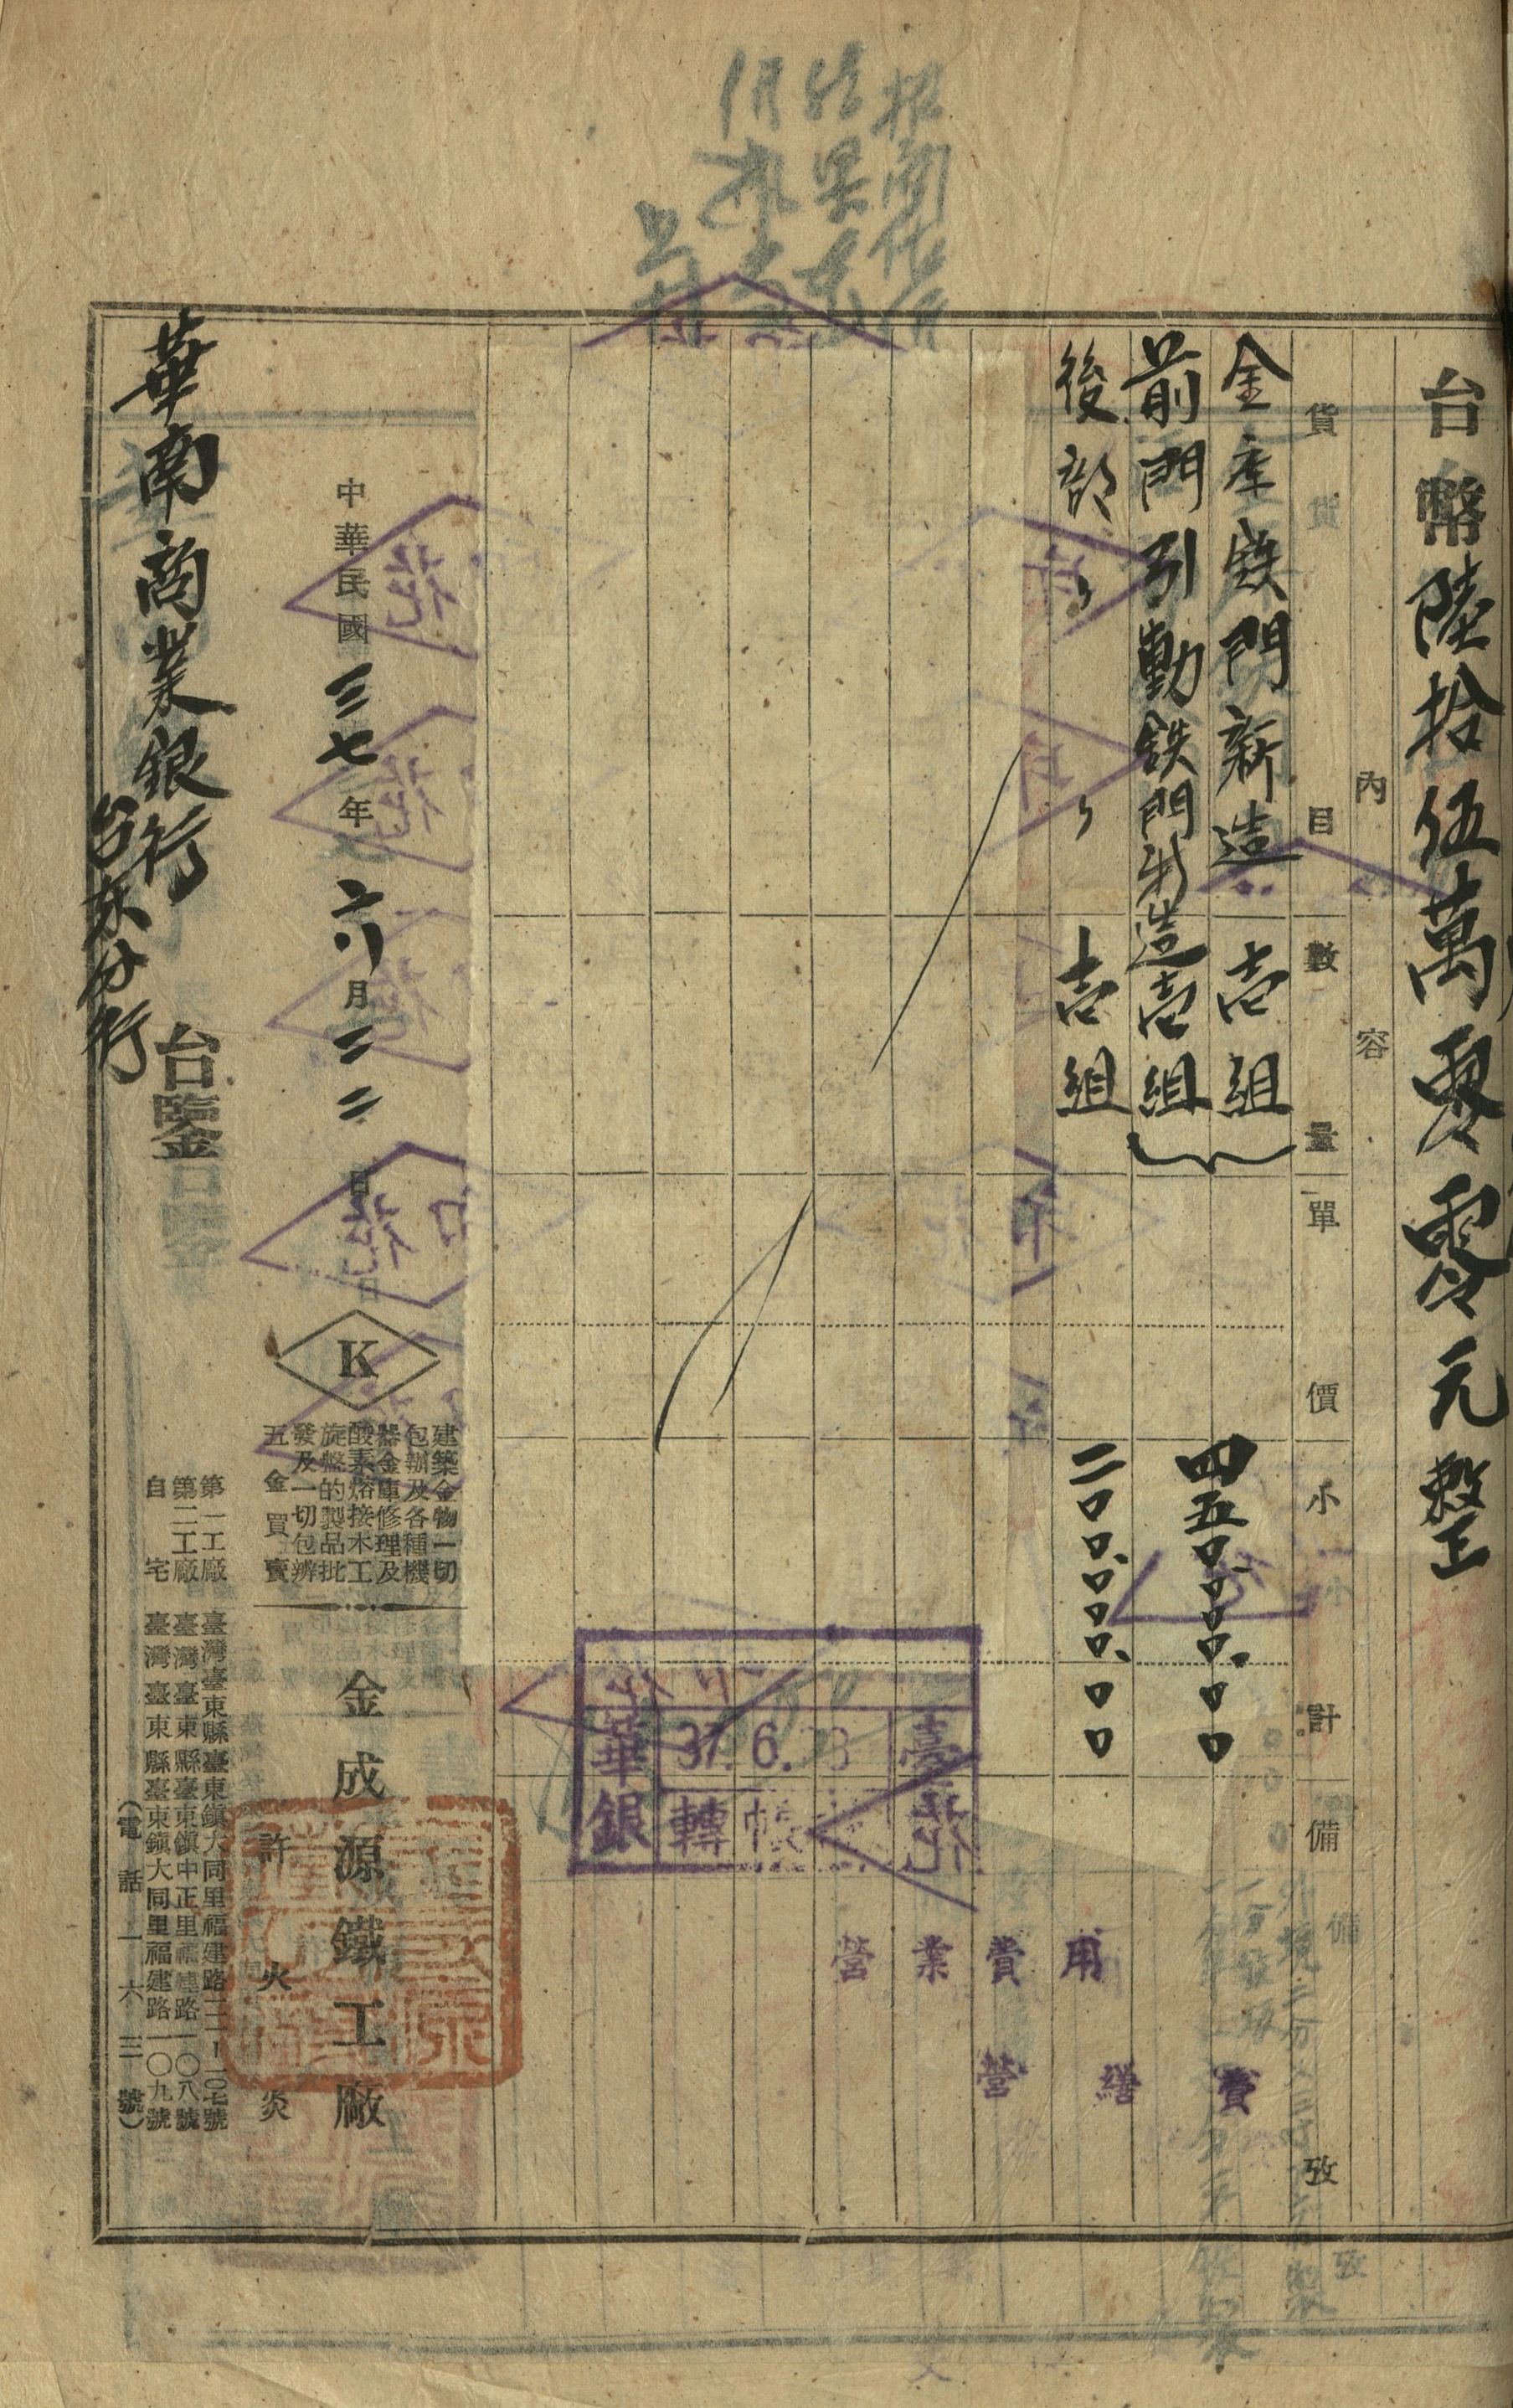 台幣陸拾伍萬零零元整
內容
貨目 數量 單價 小計 備攷
金庫鉄門新造 壱組
前門引動鉄門新造 壱組 四五〇、〇〇〇.〇〇
後部〃〃 壱組 二〇〇、〇〇〇.〇〇
營業費用
營繕費
華銀 37.6.23 轉帳 臺
中華民國三七年六月二二日
K
建築金物一切
包辦及各種機
器金庫修理及
酸素熔接木工
旋盤的製品批
發及一切包辨
五金買賣
金成源鐵工廠
許火炎
第一工廠 臺灣臺東縣臺東鎭大同里福建路
第二工廠 臺灣臺東縣臺東鎭中正里福建路一〇八號
自宅 臺灣臺東縣臺東鎭大同里福建路一〇九號
（電話一六三號）
華南商業銀行台東分行 台鑒